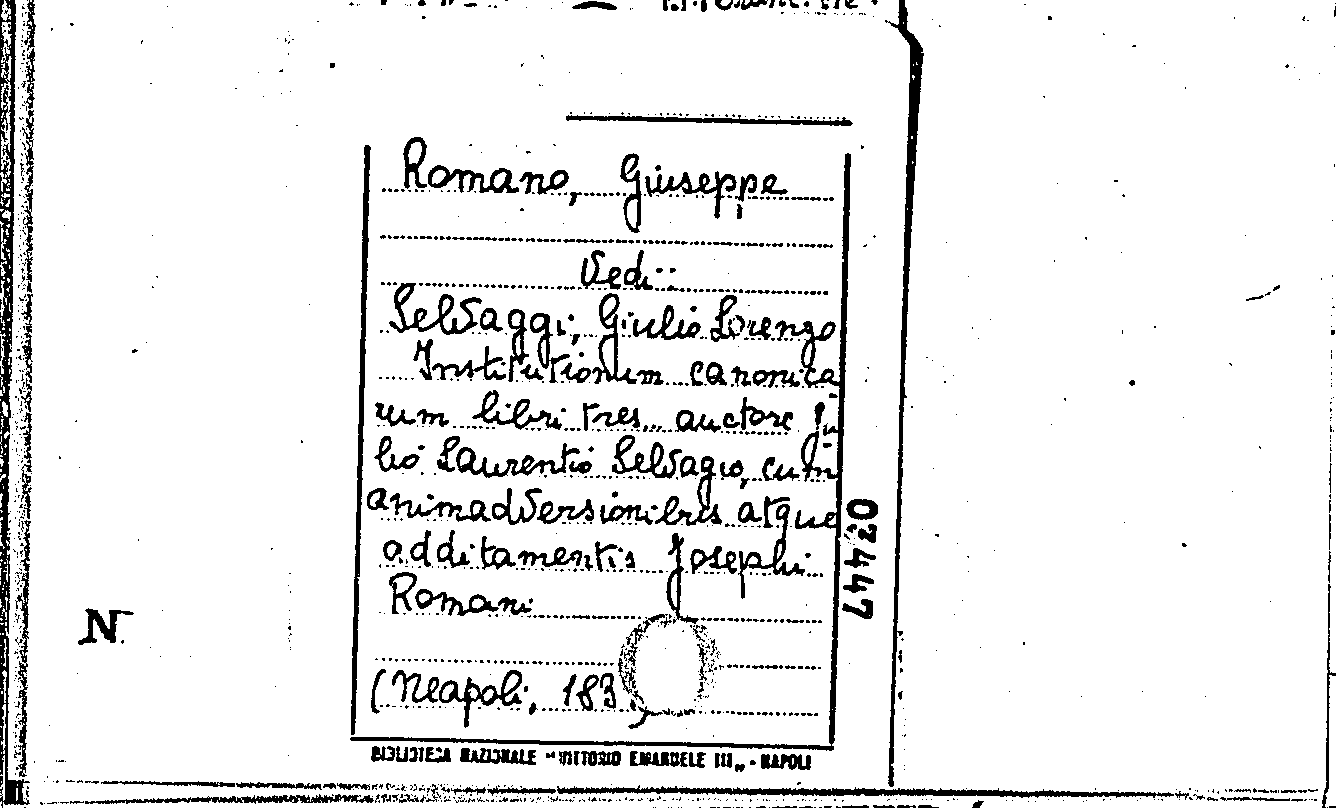 Romano, Giuseppe
Vedi:
Selvaggi, Giulio Lorenzo
Institutionum canonica-
rum libri tres... auctore Ju-
lio Laurentio Selvagio, cum
animadversionibus atque
additamentis Josephi
Romani
(Neapoli, 183
BIBLIOTECA NAZIONALE "VITTORIO EMANUELE III" - NAPOLI
03447
N